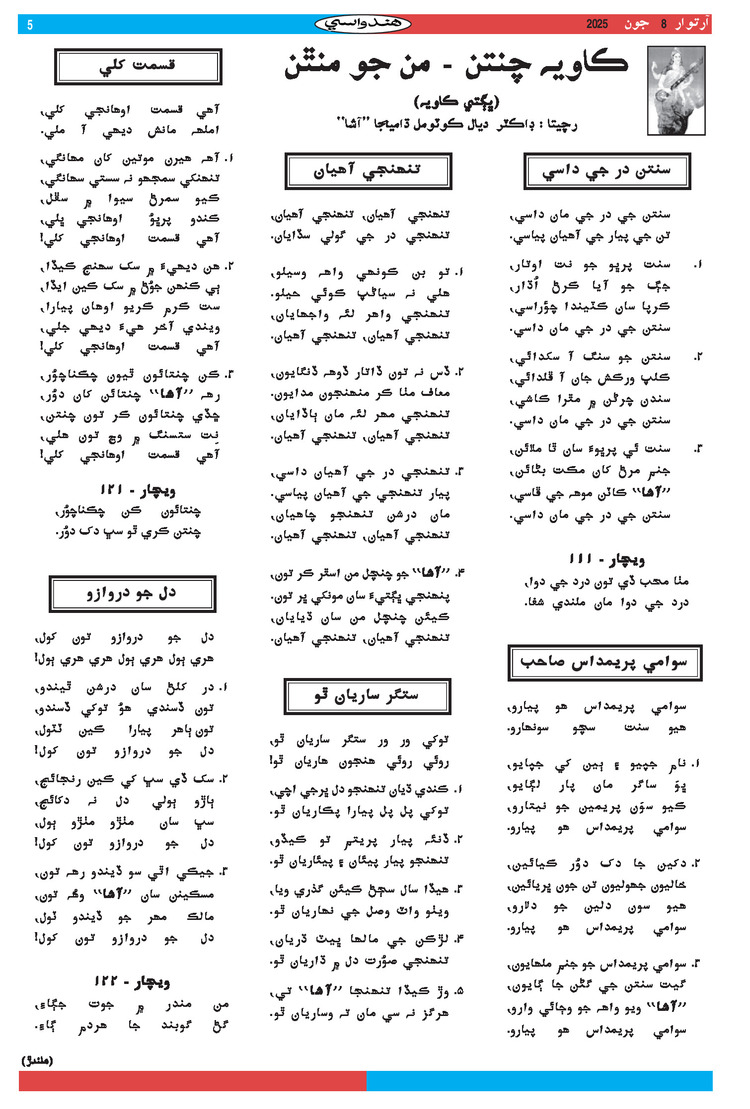 آرتوار 8 جون 2025
هندواسي
5
ڪاويہ چنتن - من جو منٿن
(ڀڳتي ڪاويہ)
رچيتا : ڊاڪٽر ديال ڪوٽومل ڌاميجا ”آشا“
سنتن در جي داسي
سنتن جي در جي مان داسي،
تن جي پيار جي آهيان پياسي.
۱. سنت پرڀو جو نت اوتار،
جڳ جو آيا ڪرڻ اُڌار،
ڪرپا سان ڪٽيندا چؤراسي،
سنتن جي در جي مان داسي.
۲. سنتن جو سنگ آ سکدائي،
ڪلپ ورڪش جان آ ڦلدائي،
سندن چرڻن ۾ مٿرا ڪاشي،
سنتن جي در جي مان داسي.
۳. سنت ئي پرڀوءَ سان ٿا ملائن،
جنم مرڻ کان مڪت بڻائن،
”آشا“ ڪاٽن موهہ جي ڦاسي،
سنتن جي در جي مان داسي.
ويچار - ۱۱۱
مٺا محب ڏي تون درد جي دوا،
درد جي دوا مان ملندي شفا.
سوامي پريمداس صاحب
سوامي پريمداس هو پيارو،
هيو سنت سچو سونهارو.
۱. نام جپيو ۽ ٻين کي جپايو،
ڀؤ ساگر مان پار لڳايو،
ڪيو سوَن پريمين جو نيتارو،
سوامي پريمداس هو پيارو.
۲. دکين جا دک دؤر ڪيائين،
خاليون جهوليون تن جون ڀريائين،
هيو سون دلين جو دلارو،
سوامي پريمداس هو پيارو.
۳. سوامي پريمداس جو جنم ملهايون،
گيت سنتن جي گڻن جا ڳايون،
”آشا“ ويو واهہ جو وڄائي وارو،
سوامي پريمداس هو پيارو.
تنهنجي آهيان
تنهنجي آهيان، تنهنجي آهيان،
تنهنجي در جي گولي سڏايان.
۱. تو بن ڪونهي واهہ وسيلو،
هلي نہ سياڻپ ڪوئي حيلو،
تنهنجي واهر لئہ واجهايان،
تنهنجي آهيان، تنهنجي آهيان.
۲. ڏس نہ تون ڏاتار ڏوهہ ڏنگايون،
معاف مٺا ڪر منهنجون مدايون،
تنهنجي مهر لئہ مان ٻاڏايان،
تنهنجي آهيان، تنهنجي آهيان.
۳. تنهنجي در جي آهيان داسي،
پيار تنهنجي جي آهيان پياسي،
مان درشن تنهنجو چاهيان،
تنهنجي آهيان، تنهنجي آهيان.
۴. ”آشا“ جو چنچل من اسٿر ڪر تون،
پنهنجي ڀڳتيءَ سان مونکي ڀر تون،
ڪيئن چنچل من سان ڌيايان،
تنهنجي آهيان، تنهنجي آهيان.
ستگر ساريان ٿو
توکي ور ور ستگر ساريان ٿو،
روئي روئي هنجون هاريان ٿو!
۱. ڪندي ڌيان تنهنجو دل ڀرجي اچي،
توکي پل پل پيارا پڪاريان ٿو.
۲. ڏنئہ پيار پريتم تو ڪيڏو،
تنهنجو پيار پيئان ۽ پيئاريان ٿو.
۳. هيڏا سال سڄڻ ڪيئن گذري ويا،
ويٺو واٽ وصل جي نهاريان ٿو.
۴. لڙڪن جي مالها ڀيٽ ڌريان،
تنهنجي صؤرت دل ۾ ڌاريان ٿو.
۵. وڙ ڪيڏا تنهنجا ”آشا“ تي،
هرگز نہ سي مان تہ وساريان ٿو.
قسمت کلي
آهي قسمت اوهانجي کلي،
املهہ مانش ديهي آ ملي.
۱. آهہ هيرن موتين کان مهانگي،
تنهنکي سمجهو نہ سستي سهانگي،
ڪيو سمرڻ سيوا ۾ سڦل،
ڪندو پرڀؤ اوهانجي ڀلي،
آهي قسمت اوهانجي کلي!
۲. هن ديهيءَ ۾ سک سهنج ڪيڏا،
ٻي ڪنهن جؤڻ ۾ سک ڪين ايڏا،
ست ڪرم ڪريو اوهان پيارا،
ويندي آخر هيءَ ديهي جلي،
آهي قسمت اوهانجي کلي!
۳. ڪن چنتائون ٿيون چڪناچؤر،
رهہ ”آشا“ چنتائن کان دؤر،
ڇڏي چنتائون ڪر تون چنتن،
نِت ستسنگ ۾ وڃ تون هلي،
آهي قسمت اوهانجي کلي!
ويچار - ۱۲۱
چنتائون ڪن چڪناچؤر،
چنتن ڪري ٿو سڀ دک دؤر.
دل جو دروازو
دل جو دروازو تون کول،
هري ٻول هري ٻول هري هري ٻول!
۱. در کلڻ سان درشن ٿيندو،
تون ڏسندي هؤ توکي ڏسندو،
تون ٻاهر پيارا ڪين ٽٽول،
دل جو دروازو تون کول!
۲. سک ڏي سڀ کي ڪين رنجائڄ،
ٻاڙو ٻولي دل نہ دکائڄ،
سڀ سان مٺڙو مٺڙو ٻول،
دل جو دروازو تون کول!
۳. جيڪي اٿي سو ڏيندو رهہ تون،
مسڪينن سان ”آشا“ وڳہ تون،
مالڪ مهر جو ڏيندو ٽول،
دل جو دروازو تون کول!
ويچار - ۱۲۲
من مندر ۾ جوت جڳاءِ،
گڻ گوبند جا هردم ڳاءِ.
(هلندڙ)